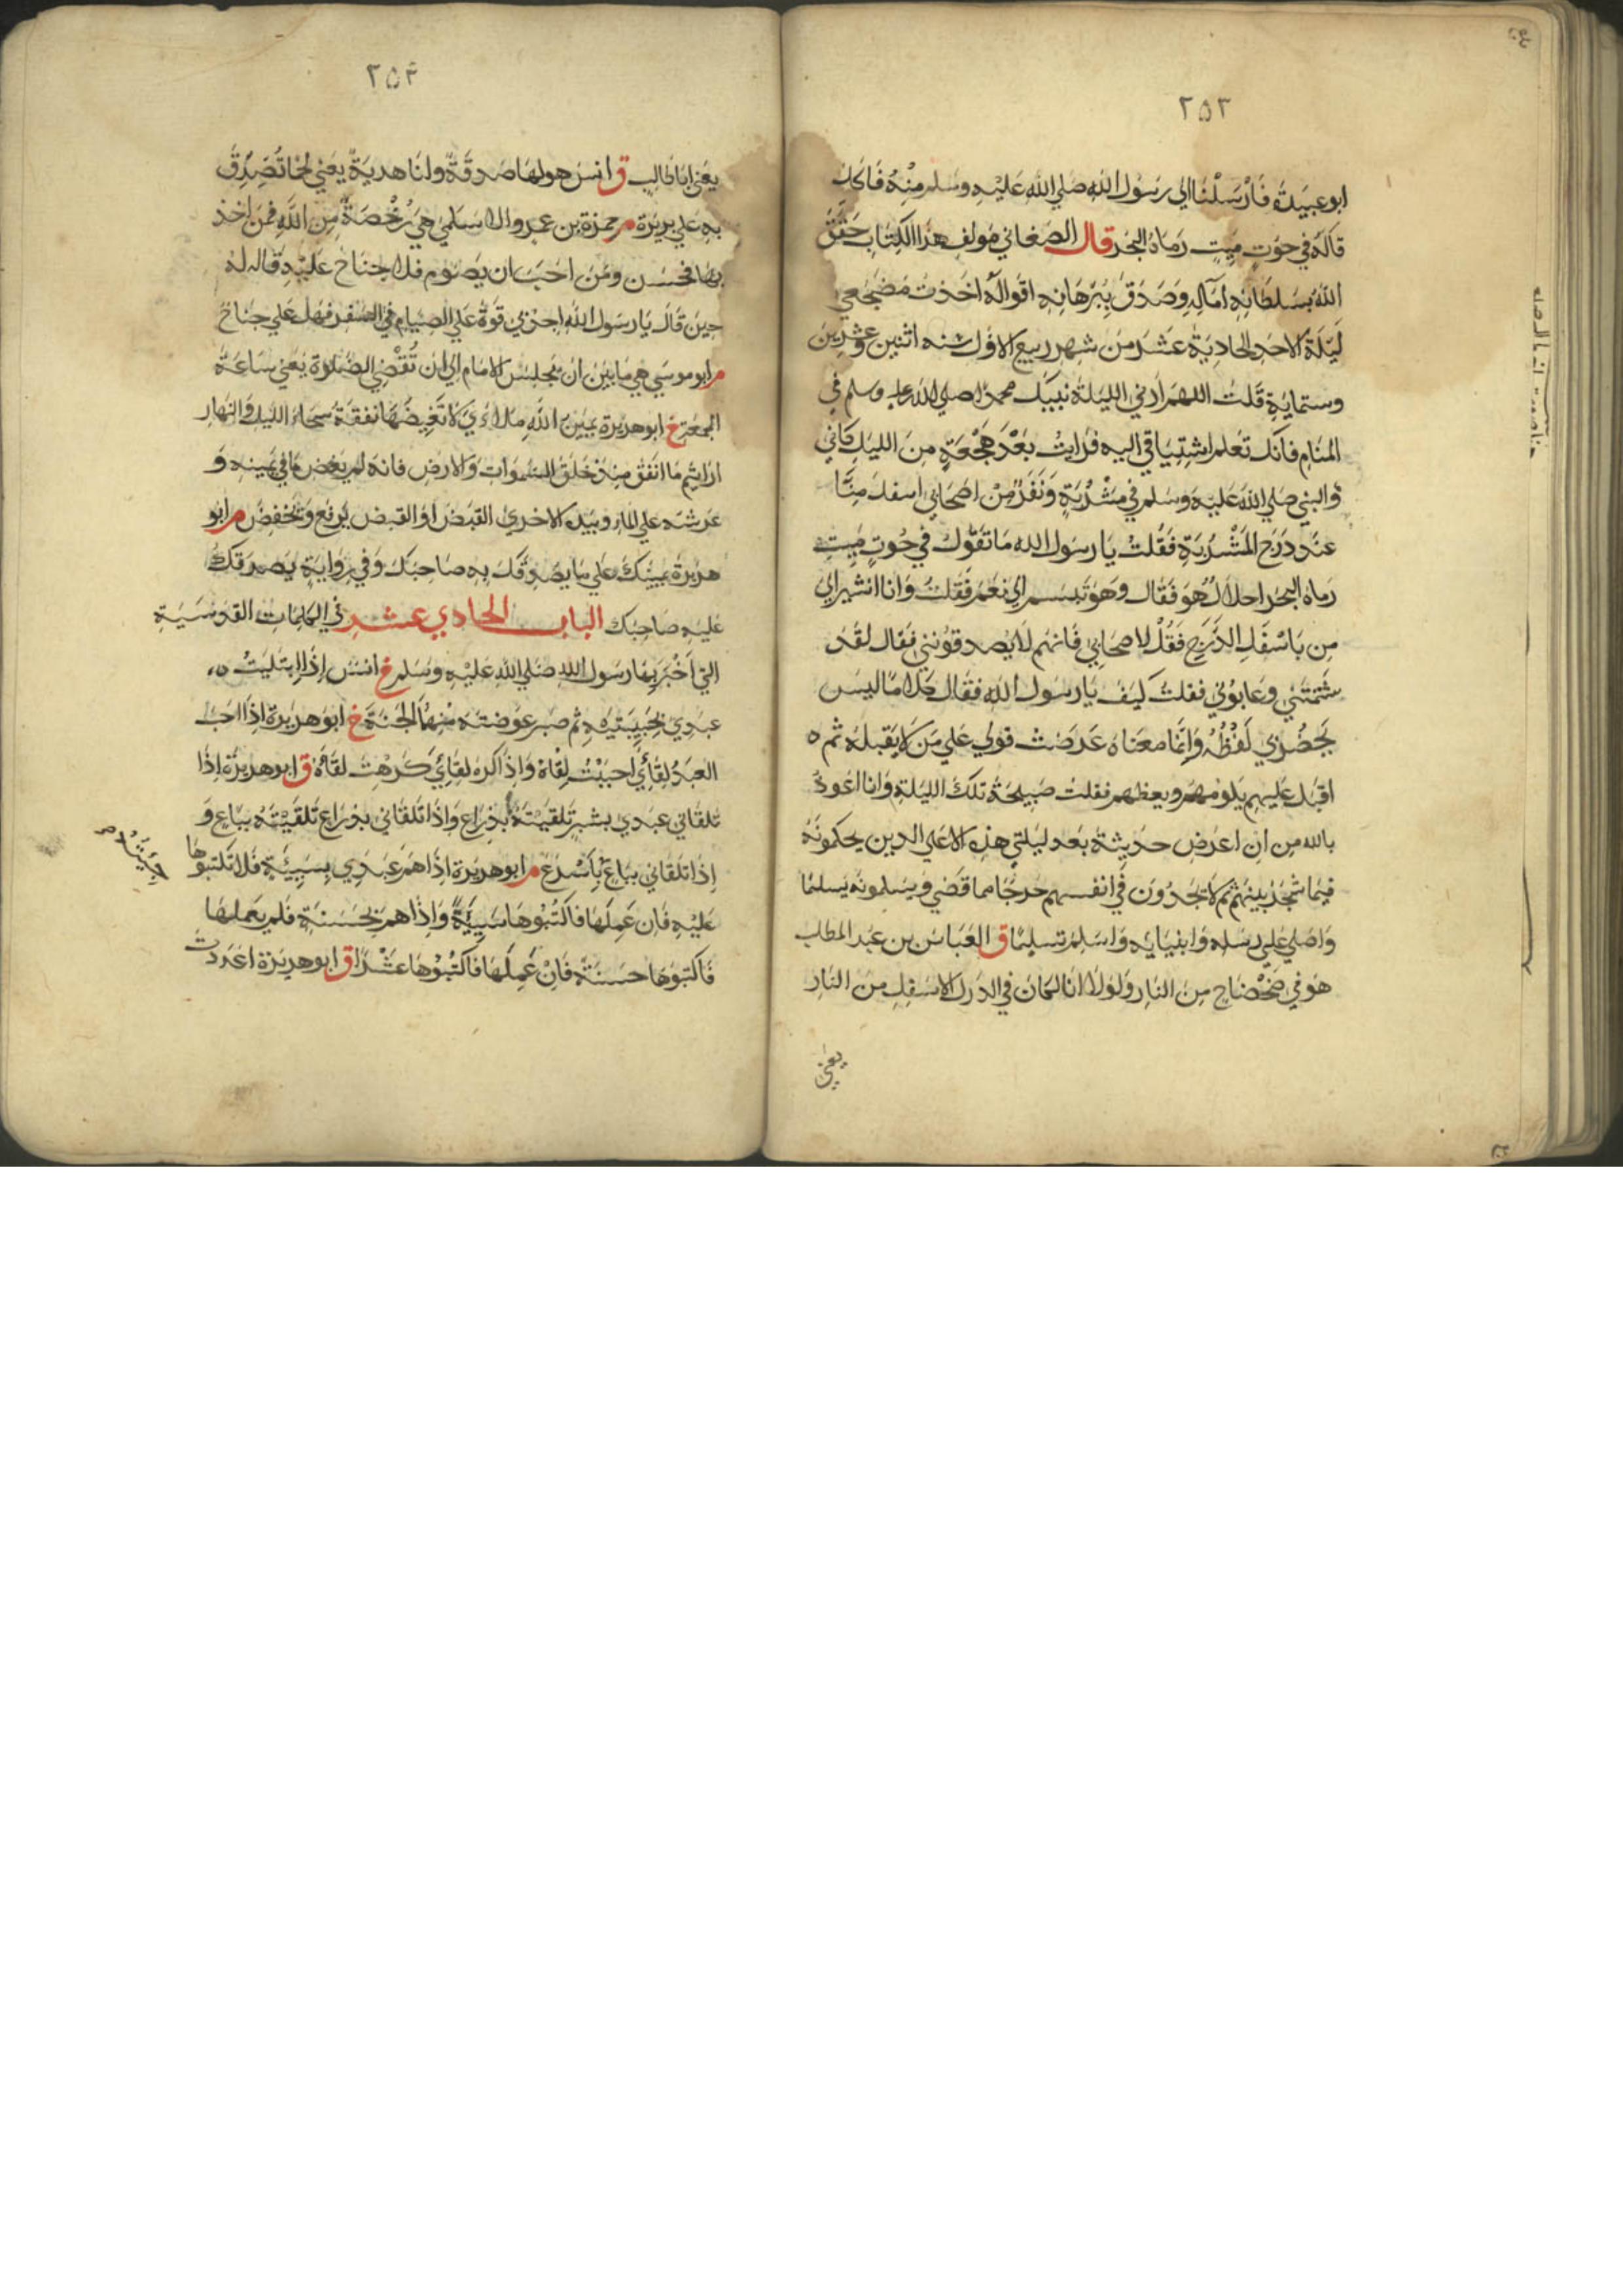 ٢٥٣
ابوعبيدة فارسلنا الي رسول الله صلي الله عليه وسلم منه فاكل
قاله في حوت ميت رماه البحر قال الصغاني مولف هذا الكتاب حقق
الله بسلطانه اماله وصدق ببرهانه اقواله اخذت مضجعي
ليلة الاحد الحادية عشر من شهر ربيع الاول سنه اثنين وعشرين
وستماية قلت اللهم ارني الليلة نبيك محمدا صلي الله عليه وسلم في
المنام فانك تعلم اشتياقي اليه فرايت بعد هجعة من الليل كاني
والنبي صلي الله عليه وسلم في مشربة ونفر من اصحابي اسفل منا
عند درج المشربة فقلت يا رسول الله ما تقول في حوت ميت
رماه البحر احلال هو فقال وهو تبسم الي نعم فقلت وانا اشير الي
من باسفل الدرج فقل لاصحابي فانهم لا يصدقونني فقال لقد
شتمتني وعابوني فقلت كيف يا رسول الله فقال كلاما ليس
يحضرني لفظه وانما معناه عرضت قولي علي من لا يقبله ثم ه
اقبل عليهم يلومهم ويعظهم فقلت صبيحة تلك الليلة وانا اعوذ
بالله من ان اعرض حديثه بعد ليلتي هذه الا علي الذين يحكمونه
فيما شجر بينهم ثم لا يجدون في انفسهم حرجا مما قضي ويسلمونه تسليما
واصلي علي رسله وانبيايه واسلم تسليما ق العباس بن عبد المطلب
هو في ضحضاح من النار ولولا انا لكان في الدرك الاسفل من النار
يعني
٢٥٤
يعني ابا طالب ق انس هو لها صدقة ولنا هدية يعني لحما تصدق
به علي بريرة م حمزة بن عمرو الاسلمي هي رخصة من الله فمن اخذ
بها فحسن ومن احب ان يصوم فلا جناح عليه قاله له
حين قال يا رسول الله اجد بي قوة علي الصيام في السفر فهل علي جناح
م ابو موسي هي ما بين ان يجلس الامام الي ان تقضي الصلاة يعني ساعة
الجمعة خ ابو هريرة يمين الله ملاي لا تغيضها نفقة سحاء الليل والنهار
ارايتم ما انفق منذ خلق السموات والارض فانه لم يغض ما في يمينه و
عرشه علي الماء وبيده الاخري القبض او القبض يرفع ويخفض م ابو
هريرة يمينك علي ما يصدقك به صاحبك وفي رواية يصدقك
عليه صاحبك الباب الحادي عشر في الكلمات القدسية
التي اخبر بها رسول الله صلي الله عليه وسلم خ انس اذا ابتليت ه
عبدي بحبيبتيه ثم صبر عوضته منهما الجنة خ ابو هريرة اذا احب
العبد لقاي احببت لقاه واذا كره لقاي كرهت لقاه ق ابو هريرة اذا
تلقاني عبدي بشبر تلقيته بذراع واذا تلقاني بذراع تلقيته بباع و
اذا تلقاني بباع باسرع م ابو هريرة اذا هم عبدي بسيئة فلا تكتبوها
جئته
عليه فان عملها فاكتبوها سيئة واذا هم بحسنة فلم يعملها
فاكتبوها حسنة فان عملها فاكتبوها عشرا ق ابو هريرة اعددت